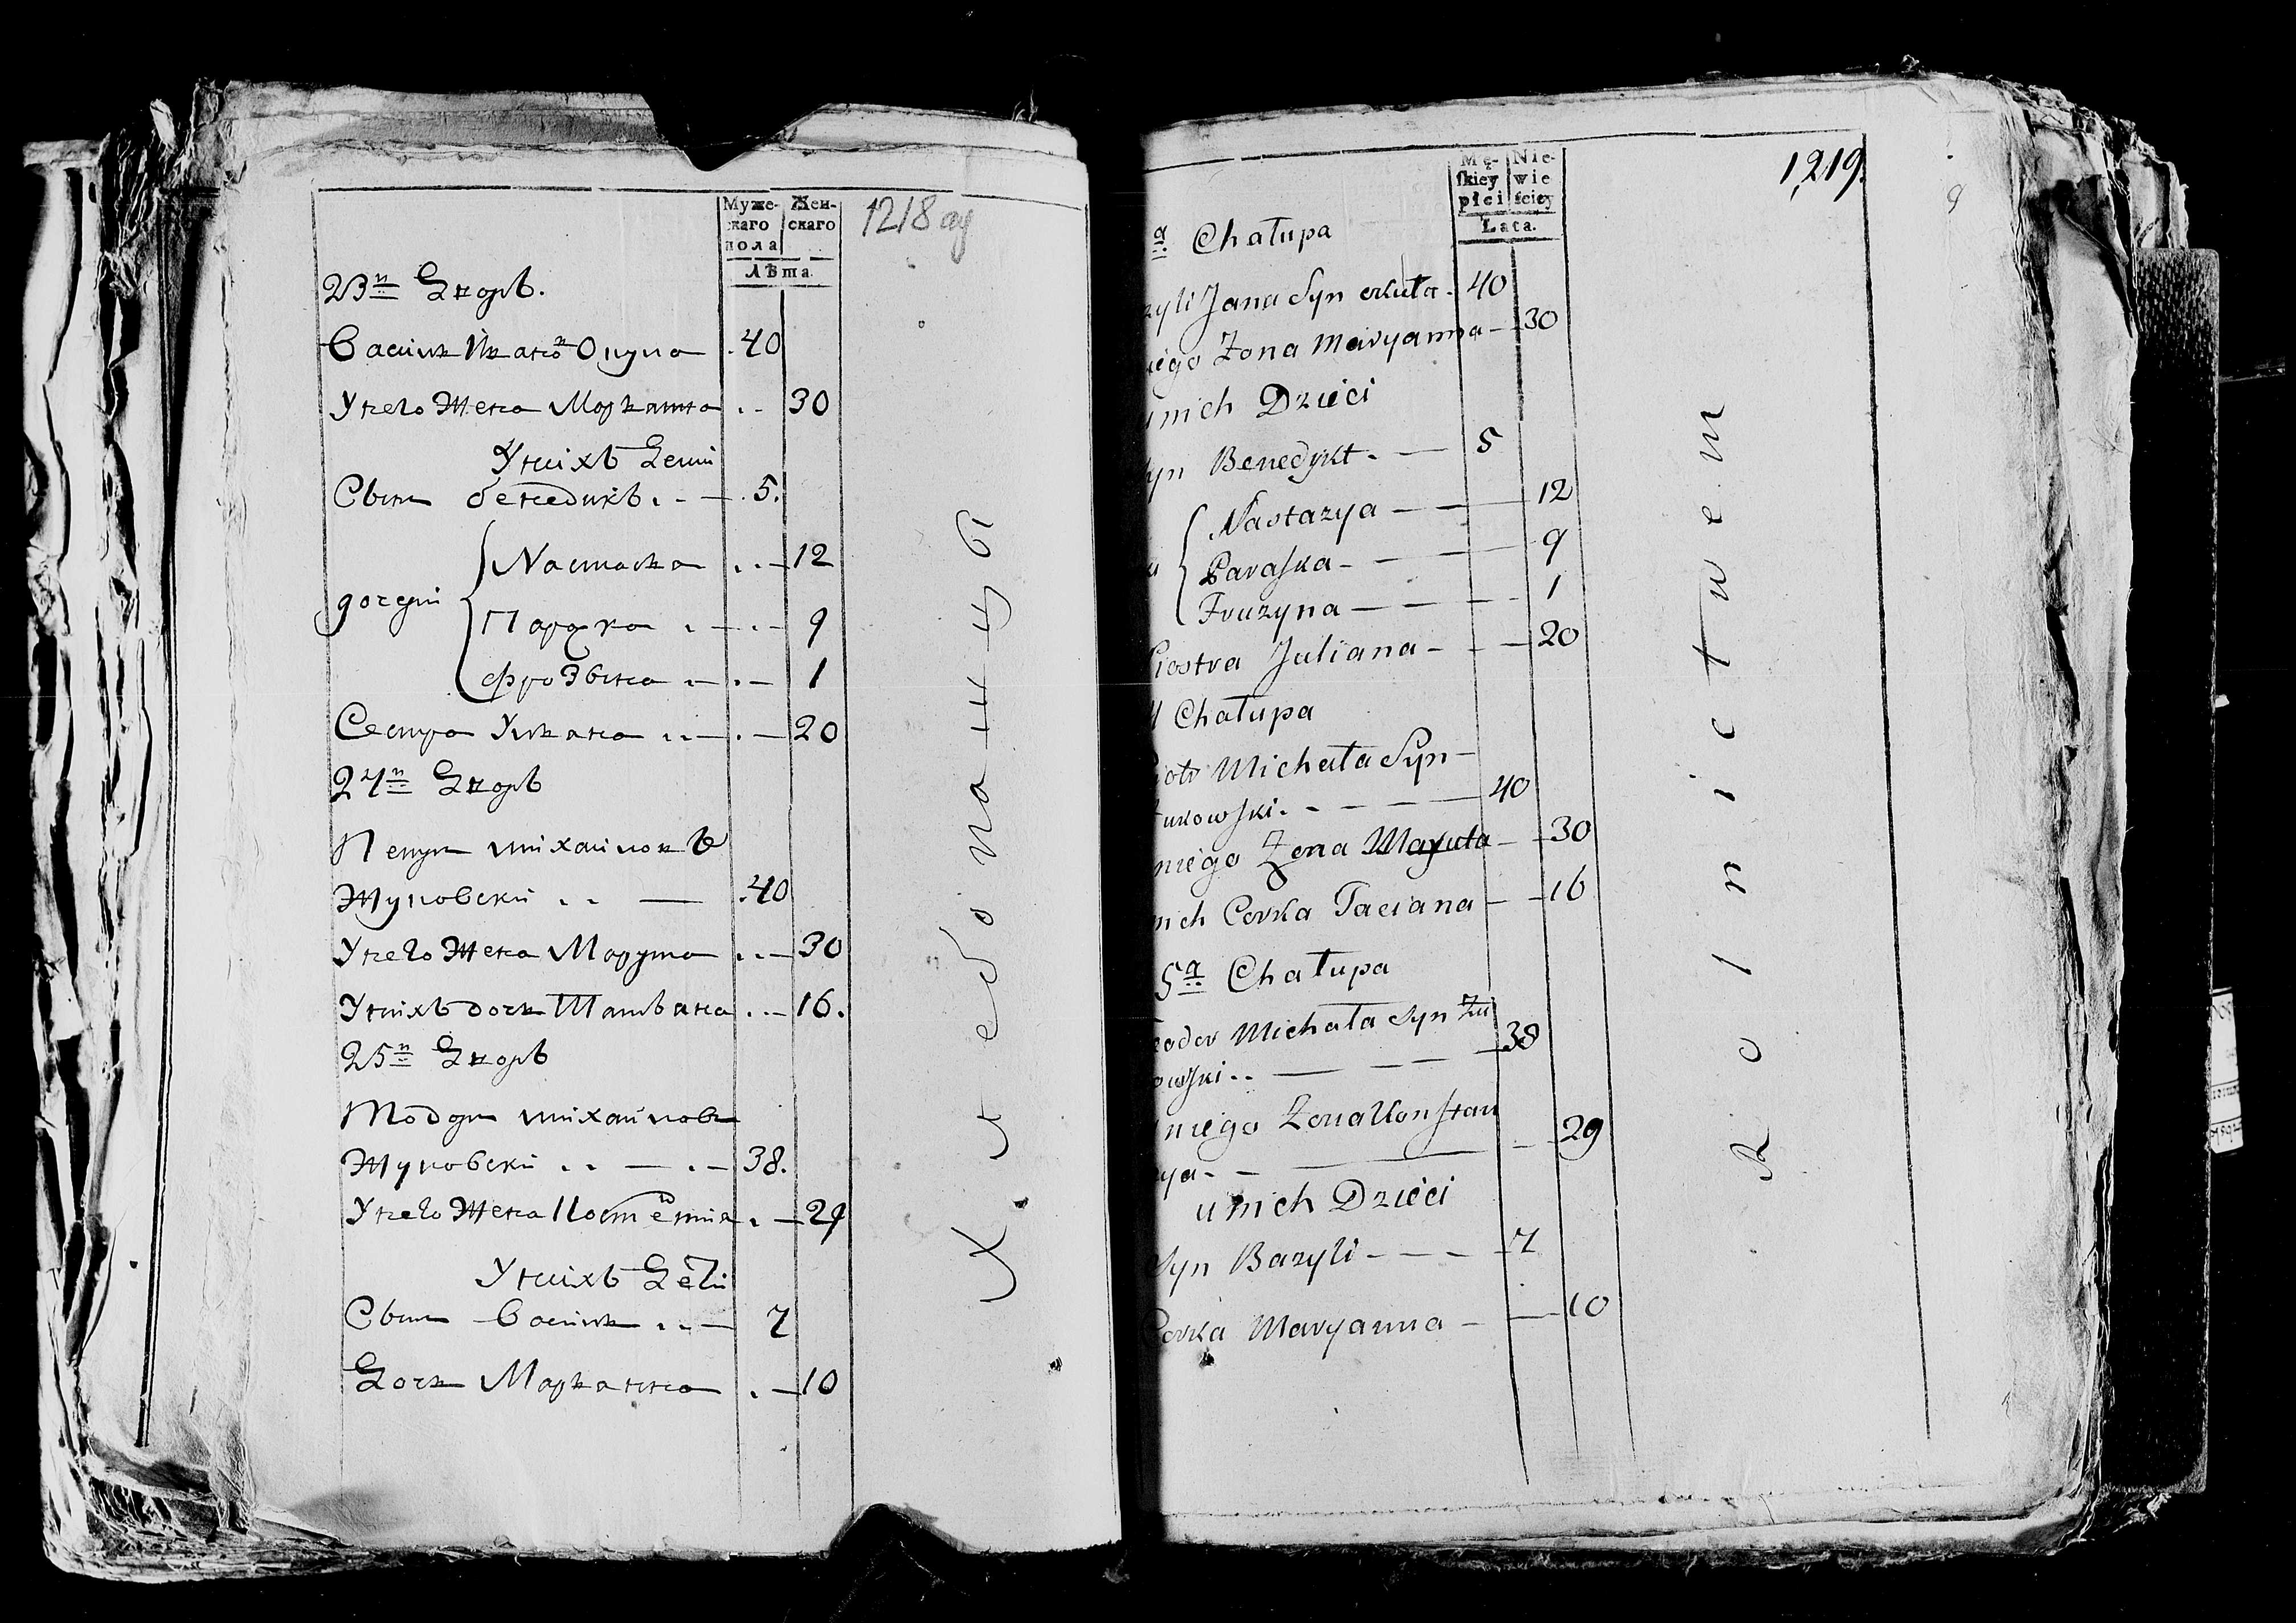 Муже-
скаго
пола
Жен-
скаго
Лѣта
1218
23й Дворъ.
Василь 40
Унего Жена Марьяна .. 30
Унихъ Дети
Сынъ бенедикъ . - — 5.
дочери
Настасья .. — 12
Параска . — . — 9
Фрозына . — 1
Сестра Ульяна .. — . — 20
24й Дворъ
Петръ михайловъ
Жуковски .. — 40
Унего Жена Марута ... — 30
Унихъ дочь Татьяна ... — 16.
25й Дворъ
Тодоръ михайловъ
Жуковски .. — . — 38.
Унего Жена . — 29
Унихъ Дети
Сынъ Василь .. — 7
Дочь Марьянна . — 10
Хлебопашцы
Mę-
skiey
płci
Nie-
wie
ściey
Lata.
1219.
9
a Chałupa
zyli Jana Syn 40
niego Zona Maryanna — 30
u nich Dzieci
Syn Benedykt. — 5
Nastazya — — 12
Paraska — — 9
Fruzyna — — 1
Siostra Juliana — - — 20
4 Chałupa
iotr Michała Syn —
ukowski. - — — — 40
niego Zona Maruta — — 30
nich Corka Taciana — — 16
5a Chałupa
eodor Michała Syn Zu
owski .. — — — — 38
niego Zona Konstan
cya - — — — 29
u nich Dzieci
Syn Bazyli — — — 7
Corka Maryanna — — 10
Rolnictwem